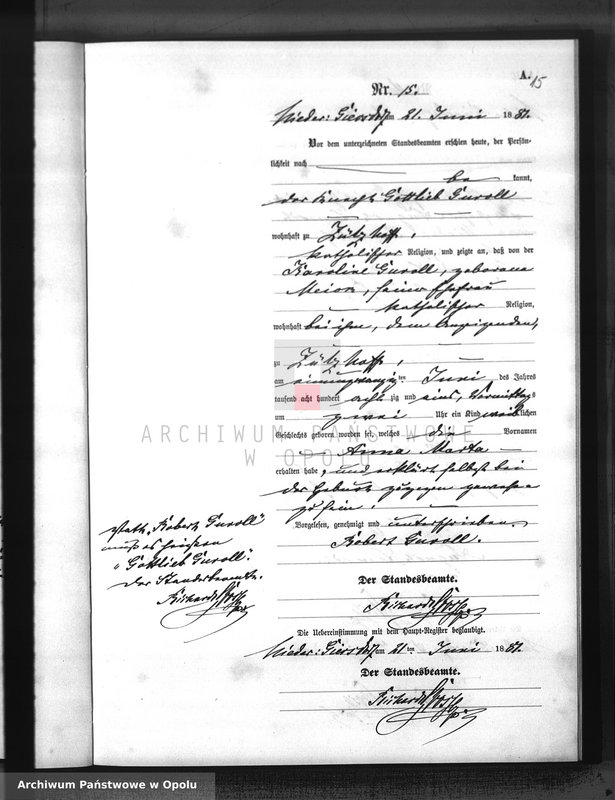 A.
15
Nr. 15.
Nieder: Giersdorf am 21. Juni 1881.
Vor dem unterzeichneten Standesbeamten erschien heute, der Persön-
lichkeit nach
be kannt,
der Knecht Gottlieb Guroll
wohnhaft zu Zülzhoff,
katholischer Religion, und zeigte an, daß von der
Karoline Guroll, geborene
Meior, seiner Ehefrau
katholischer Religion,
wohnhaft bei ihm, dem Anzeigenden,
zu Zülzhoff,
am einundzwanzigten Juni des Jahres
tausend acht hundert achtzig und eins, Vormittags
um zwei Uhr ein Kind weiblichen
Geschlechts geboren worden sei, welches die Vornamen
Anna Marta
erhalten habe, und erklärt selbst bei
der Geburt zugegen gewesen
zu sein.
Vorgelesen, genehmigt und unterschrieben.
Robert Guroll.
Statt "Robert Guroll"
muß es heißen
"Gottlieb Guroll".
Der Standesbeamte.
Der Standesbeamte.
Die Uebereinstimmung mit dem Haupt-Register beglaubigt.
Nieder: Giersdorf am 21ten Juni 1881.
Der Standesbeamte.
ARCHIWUM PAŃSTWOWE
W OPOLU
Archiwum Państwowe w Opolu